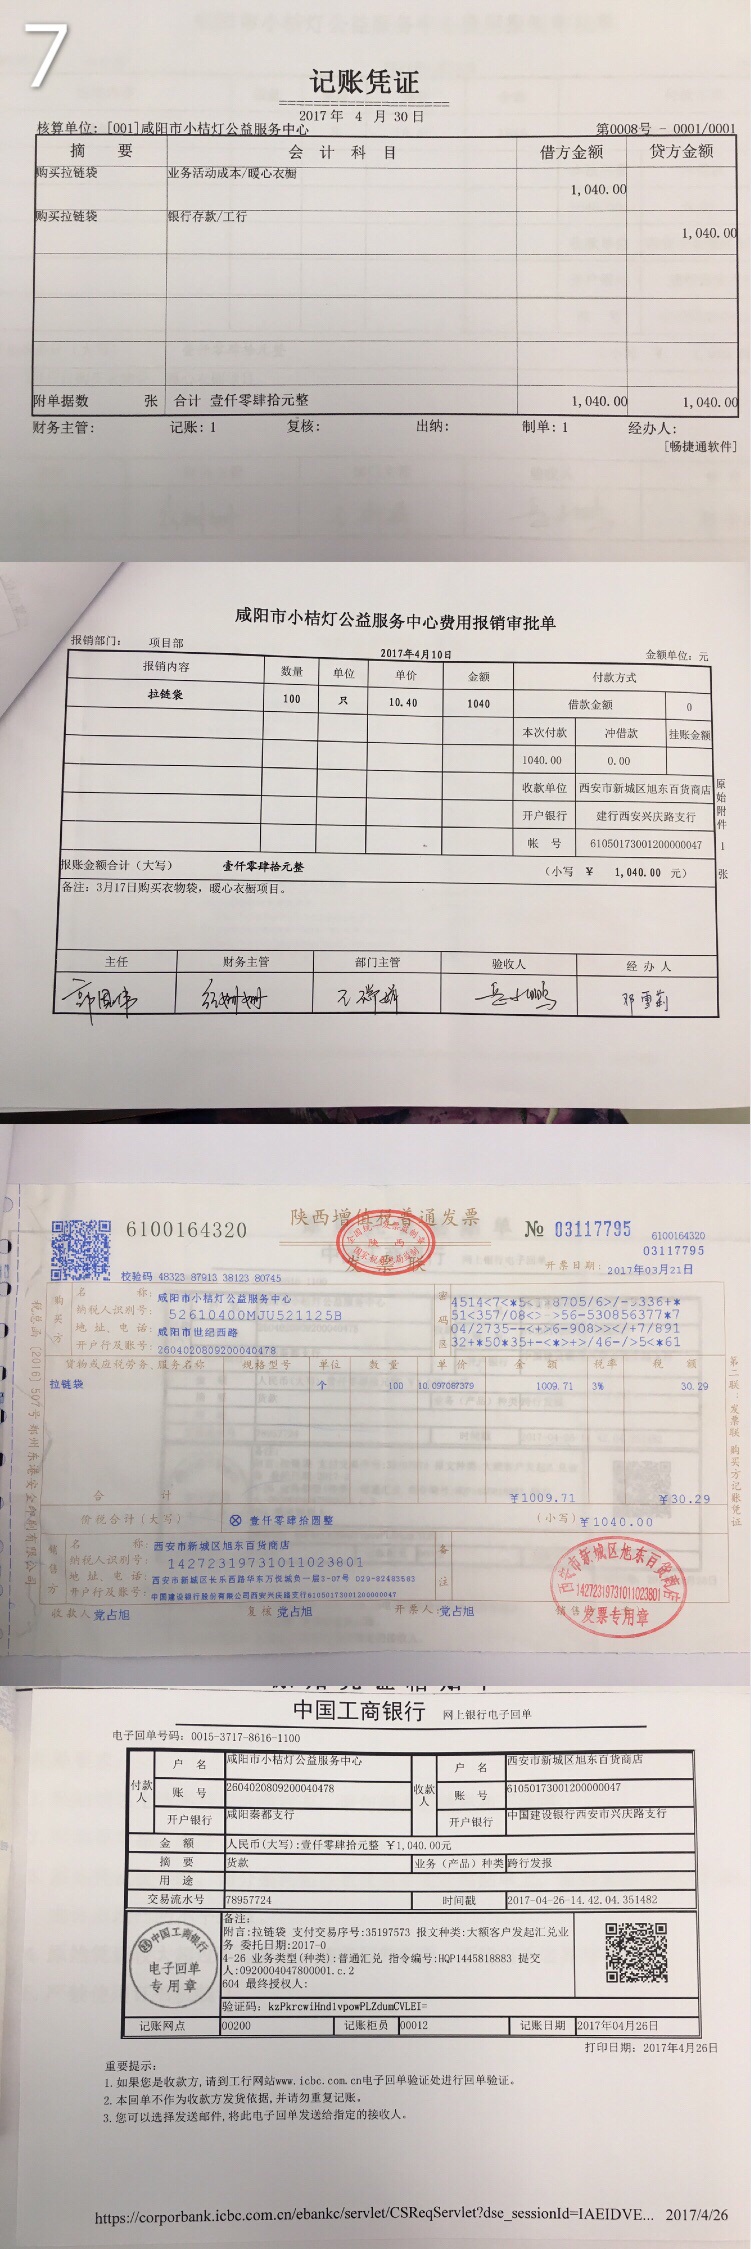 7
记账凭证
2017年 4 月 30日
核算单位: [001]咸阳市小桔灯公益服务中心 第0008号 - 0001/0001
摘 要 会 计 科 目 借方金额 贷方金额
购买拉链袋 业务活动成本/暖心衣橱 1,040.00
购买拉链袋 银行存款/工行 1,040.00
附单据数 张 合计 壹仟零肆拾元整 1,040.00 1,040.00
财务主管: 记账: 1 复核: 出纳: 制单: 1 经办人:
[畅捷通软件]
咸阳市小桔灯公益服务中心费用报销审批单
报销部门: 项目部 2017年4月10日 金额单位: 元
报销内容 数量 单位 单价 金额 付款方式
拉链袋 100 只 10.40 1040 借款金额 0
本次付款 冲借款 挂账金额
1040.00 0.00
收款单位 西安市新城区旭东百货商店
开户银行 建行西安兴庆路支行
帐 号 61050173001200000047
原始附件 1 张
报账金额合计（大写） 壹仟零肆拾元整 （小写 ¥ 1,040.00 元）
备注: 3月17日购买衣物袋，暖心衣橱项目。
主任 财务主管 部门主管 验收人 经 办 人
邓雪莉
6100164320 陕西增值税普通发票 № 03117795 6100164320
03117795
发票联
校验码 48323 87913 38123 80745 开票日期: 2017年03月21日
购买方 名 称: 咸阳市小桔灯公益服务中心
纳税人识别号: 52610400MJU521125B
地 址、电 话: 咸阳市世纪西路
开户行及账号: 2604020809200040478
密码区
04/2735--<+>6-908>></+7/891
32+*50*35+-<*>+>/46-/>5<*61
货物或应税劳务、服务名称 规格型号 单位 数 量 单 价 金 额 税率 税 额
拉链袋 个 100 10.097087379 1009.71 3% 30.29
合 计 ¥1009.71 ¥30.29
价税合计(大写) ⊗ 壹仟零肆拾圆整 (小写) ¥1040.00
销售方 名 称: 西安市新城区旭东百货商店
纳税人识别号: 142723197310110238​01
地 址、电 话: 西安市新城区长乐西路华东万悦城负一层3-07号 029-82483583
开户行及账号: 中国建设银行股份有限公司西安兴庆路支行61050173001200000047
备注
收款人 党占旭 复核 党占旭 开票人: 党占旭
西安市新城区旭东百货商店
14272319731011023801
发票专用章
第二联: 发票联 购买方记账凭证
中国工商银行 网上银行电子回单
电子回单号码: 0015-3717-8616-1100
付款人 户 名 咸阳市小桔灯公益服务中心 收款人 户 名 西安市新城区旭东百货商店
账 号 2604020809200040478 账 号 61050173001200000047
开户银行 咸阳秦都支行 开户银行 中国建设银行西安市兴庆路支行
金 额 人民币(大写):壹仟零肆拾元整 ¥1,040.00元
摘 要 货款 业务（产品）种类 跨行发报
用 途
交易流水号 78957724 时间戳 2017-04-26-14.42.04.351482
中国工商银行
电子回单
专用章
备注:
附言:拉链袋 支付交易序号:35197573 报文种类:大额客户发起汇兑业
务 委托日期:2017-0
4-26 业务类型(种类):普通汇兑 指令编号:HQP1445818883 提交
人:0920004047800001.c.2
604 最终授权人:
验证码: kzPkrcwiHnd1vpowPLZdumCVLEI=
记账网点 00200 记账柜员 00012 记账日期 2017年04月26日
打印日期: 2017年4月26日
重要提示:
1. 如果您是收款方, 请到工行网站www.icbc.com.cn电子回单验证处进行回单验证。
2. 本回单不作为收款方发货依据, 并请勿重复记账。
3. 您可以选择发送邮件, 将此电子回单发送给指定的接收人。
https://corporbank.icbc.com.cn/ebankc/servlet/CSReqServlet?dse_sessionId=IAEIDVE... 2017/4/26